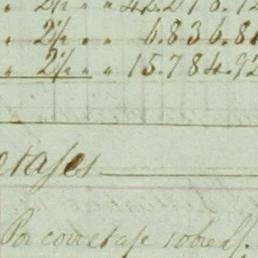 " 2½ " " 42.218.12
" 2½ " " 6.836.81
" 2½ " " 15.784.92
etajes
Por corretaje sobre